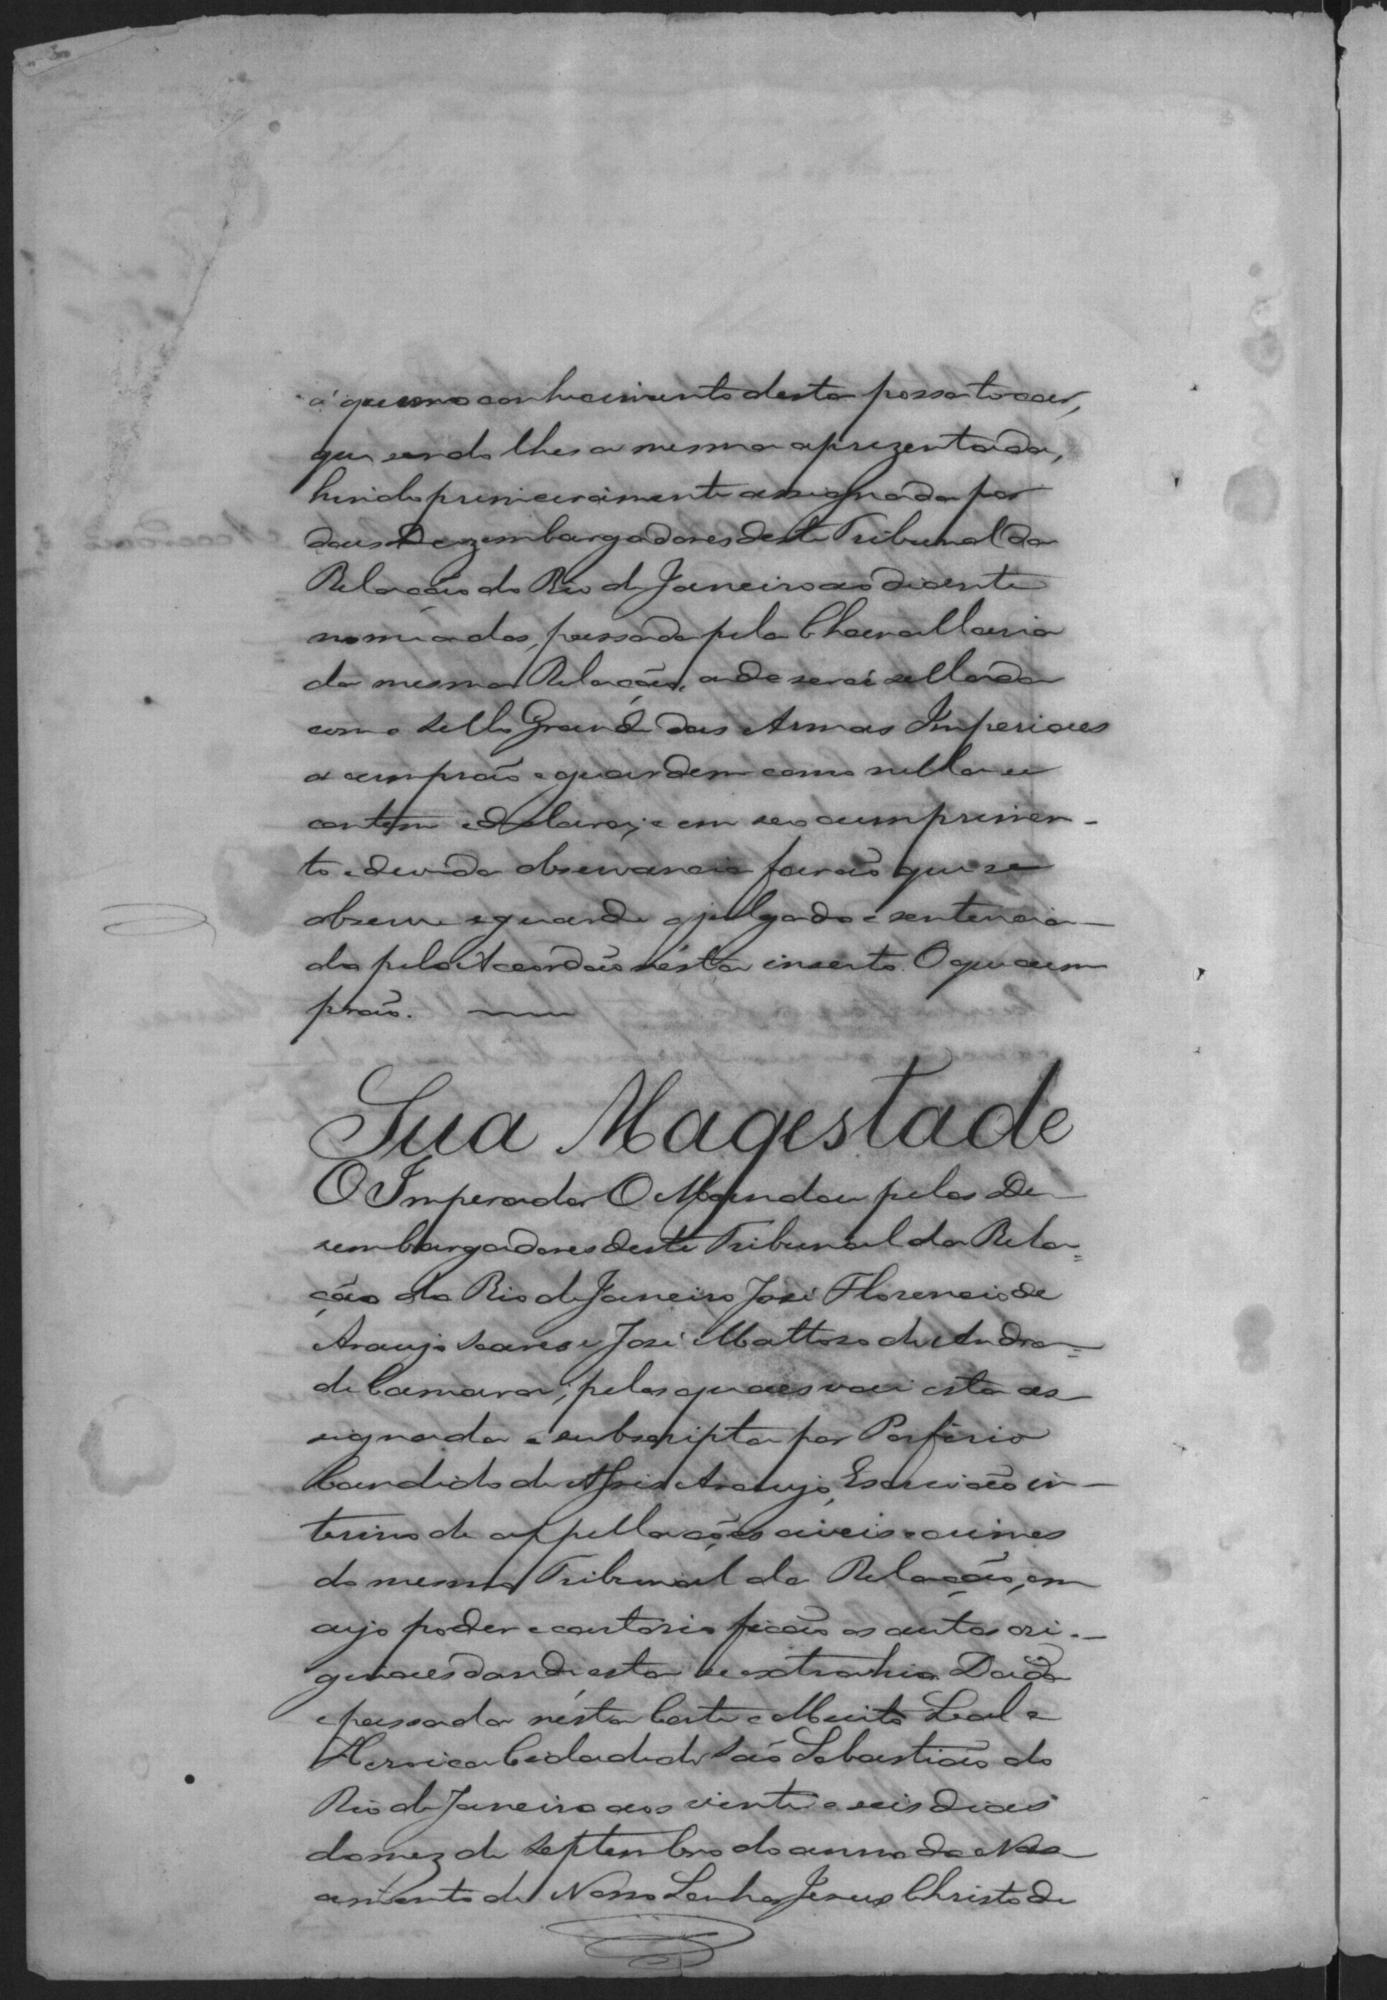 a quem o conhecimento desta possa tocar,
que sendo lhes a mesma aprezentada,
hindo primeiramente assignada por
dous Dezembargadores deste Tribunal da
Relação do Rio de Janeiro ao diante
nomeados, passada pela Chancellaria
da mesma Relação, onde será sellada
com o Sello Grande das Armas Imperiaes
a cumprão e guardem como nella se
contem e declara; e em seo cumprimen-
to e devida observancia farão que se
observe e guarde o julgado e sentencia-
do pelo Accordão nésta inserto. O que cum
prão.
Sua Magestade
O Imperador O Mandou pelos De-
sembargadores deste Tribunal da Rela=
ção do Rio de Janeiro José Florencio de
Araujo Soares e José Mattoso de Andra=
de Camara; pelos quaes vai esta as-
signada e subscripta por Porfirio
Candido de Assis Araujo, Escrivão in-
terino de appellações civeis e crimes
do mesmo Tribunal da Relação, em
cujo poder e cartorio ficão os autos ori-
ginaes donde esta se extrahio. Dada
e passada nésta Corte e Muito Leal e
Heroica Cidade de São Sebastião do
Rio de Janeiro aos vinte e seis dias
do mez de Septembro do anno do Nas-
cimento de Nosso Senhor Jesus Christo de